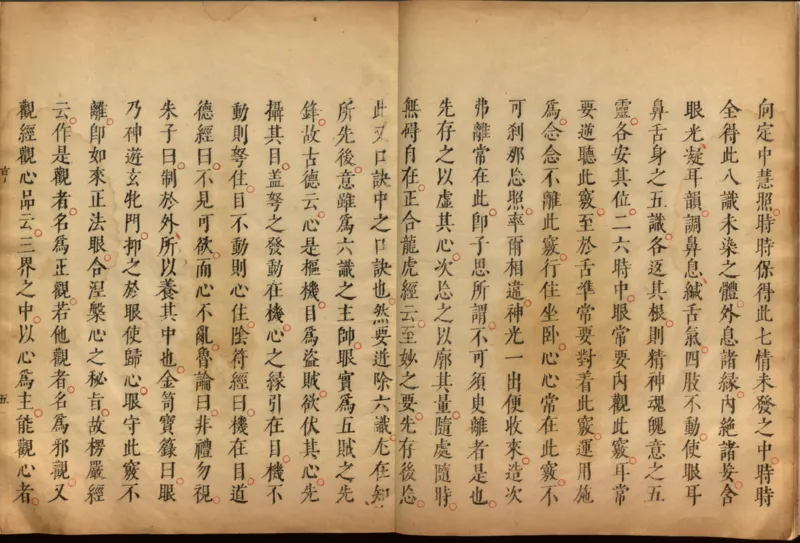 向定中慧照時時保得此七情未發之中時時
全得此八識未染之體外息諸緣內絕諸妄含
眼光凝耳韻調鼻息緘舌氣四肢不動使眼耳
鼻舌身之五識各返其根則精神魂魄意之五
靈各安其位二六時中眼常要內觀此竅耳常
要逆聽此竅至於舌準常要對着此竅運用施
爲念念不離此竅行住坐卧心心常在此竅不
可刹那忘照率爾相違神光一出便收來造次
弗離常在此卽子思所謂不可須臾離者是也
先存之以虛其心次忘之以廓其量隨處隨時
無㝵自在正合龍虎經云至妙之要先存後忘
此又口訣中之口訣也然要逆除六識尤在知
所先後意雖爲六識之主帥眼實爲五賊之先
鋒故古德云心是樞機目爲盜賊欲伏其心先
攝其目盖弩之發動在機心之緣引在目機不
動則弩住目不動則心住陰符經曰機在目道
德經曰不見可欲而心不亂魯論曰非禮勿視
朱子曰制於外所以養其中也金笥寶籙曰眼
乃神遊玄牝門抑之於眼使歸心眼守此竅不
離卽如來正法眼合涅槃心之秘旨故楞嚴經
云作是觀者名爲正觀若他觀者名爲邪觀又
觀經觀心品云三界之中以心爲主能觀心者
五